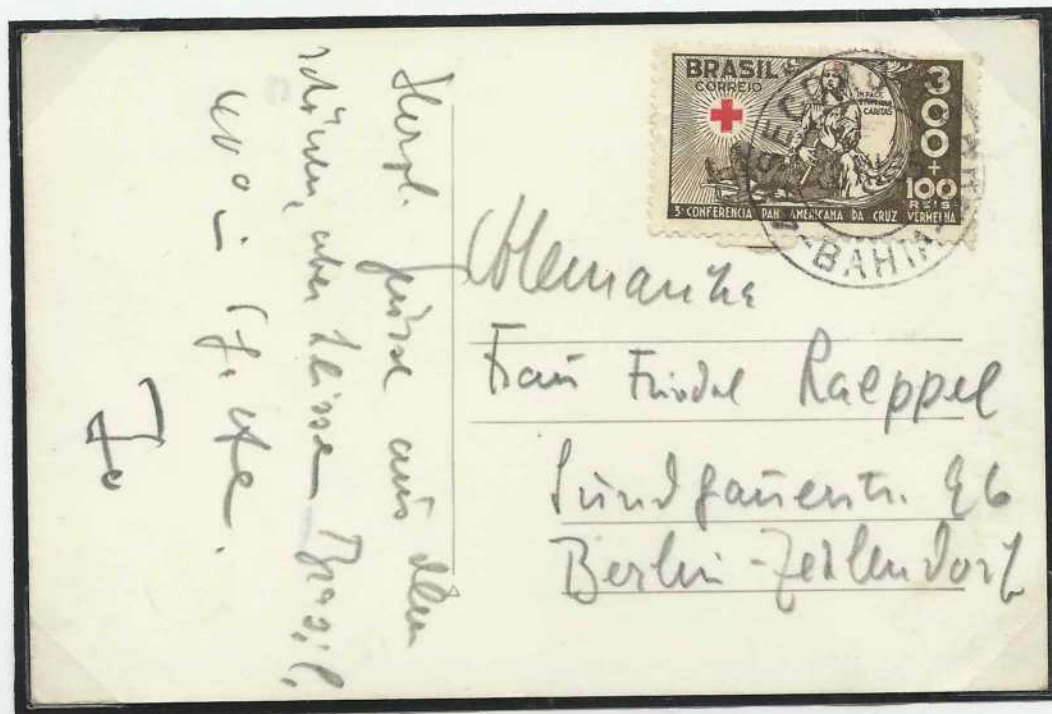 BRASIL
CORREIO
IN PACE
CARITAS
300
+
100
REIS
3ª CONFERENCIA PAN AMERICANA DA CRUZ VERMELHA
BAHIA
Alemanha
Frau Friedel Kaeppel
Sundgauerstr. 96
Berlin-Zehlendorf
Herzl. Grüsse aus dem
schönen, aber heissen Brasil,